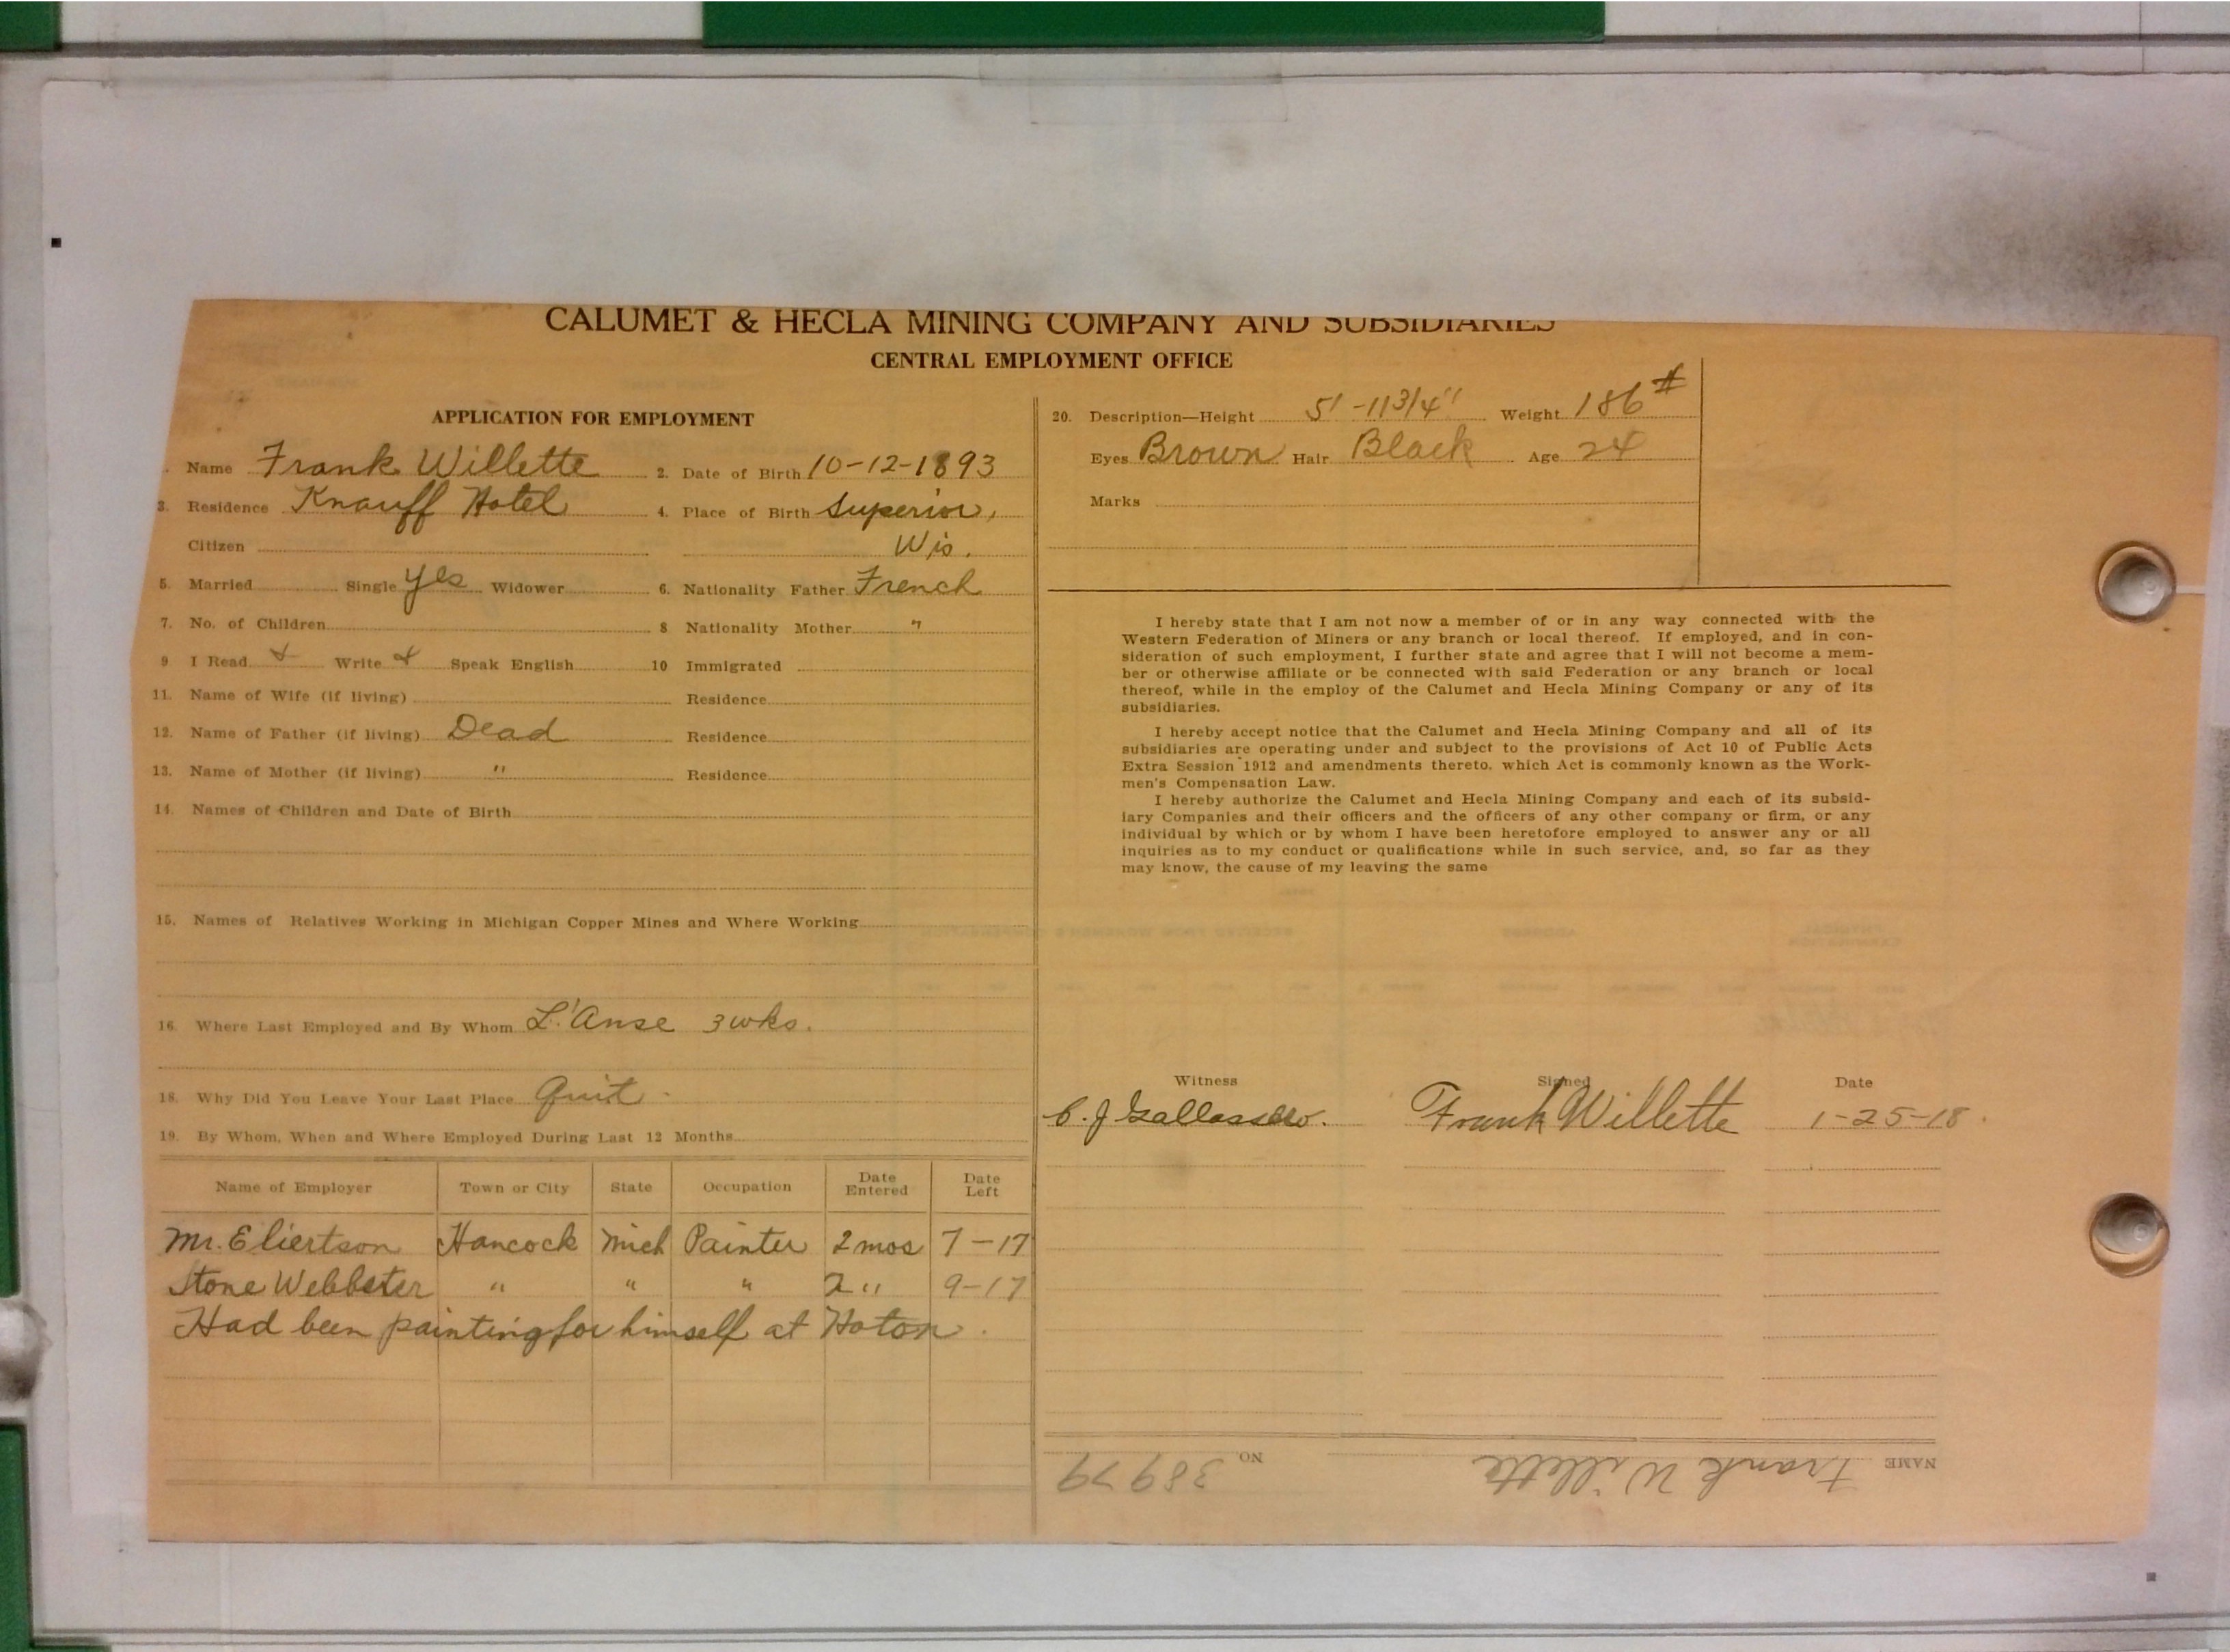 CALUMET & HECLA MINING COMPANY AND SUBSIDIARIES
CENTRAL EMPLOYMENT OFFICE
APPLICATION FOR EMPLOYMENT
Name Frank Willette 2. Date of Birth 10-12-1893
3. Residence Knauff Hotel 4. Place of Birth Superior,
Citizen Wis.
5. Married Single yes Widower 6. Nationality Father French
7. No. of Children 8 Nationality Mother "
9. I Read x Write x Speak English 10 Immigrated
11. Name of Wife (if living) Residence
12. Name of Father (if living) Dead Residence
13. Name of Mother (if living) " Residence
14. Names of Children and Date of Birth
15. Names of Relatives Working in Michigan Copper Mines and Where Working
16. Where Last Employed and By Whom L'Anse 3 wks.
18. Why Did You Leave Your Last Place Quit.
19. By Whom, When and Where Employed During Last 12 Months
Name of Employer Town or City State Occupation Date Entered Date Left
Mr. Eliertson Hancock Mich Painter 2 mos 7-17
Stone Webbster " " " 2 " 9-17
Had been painting for himself at Hoton.
20. Description—Height 5'-11 3/4" Weight 186#
Eyes Brown Hair Black Age 24
Marks
I hereby state that I am not now a member of or in any way connected with the
Western Federation of Miners or any branch or local thereof. If employed, and in con-
sideration of such employment, I further state and agree that I will not become a mem-
ber or otherwise affiliate or be connected with said Federation or any branch or local
thereof, while in the employ of the Calumet and Hecla Mining Company or any of its
subsidiaries.
I hereby accept notice that the Calumet and Hecla Mining Company and all of its
subsidiaries are operating under and subject to the provisions of Act 10 of Public Acts
Extra Session 1912 and amendments thereto, which Act is commonly known as the Work-
men's Compensation Law.
I hereby authorize the Calumet and Hecla Mining Company and each of its subsid-
iary Companies and their officers and the officers of any other company or firm, or any
individual by which or by whom I have been heretofore employed to answer any or all
inquiries as to my conduct or qualifications while in such service, and, so far as they
may know, the cause of my leaving the same
Witness Signed Date
J Frank Willette 1-25-18.
NAME Frank Willette NO. 38979